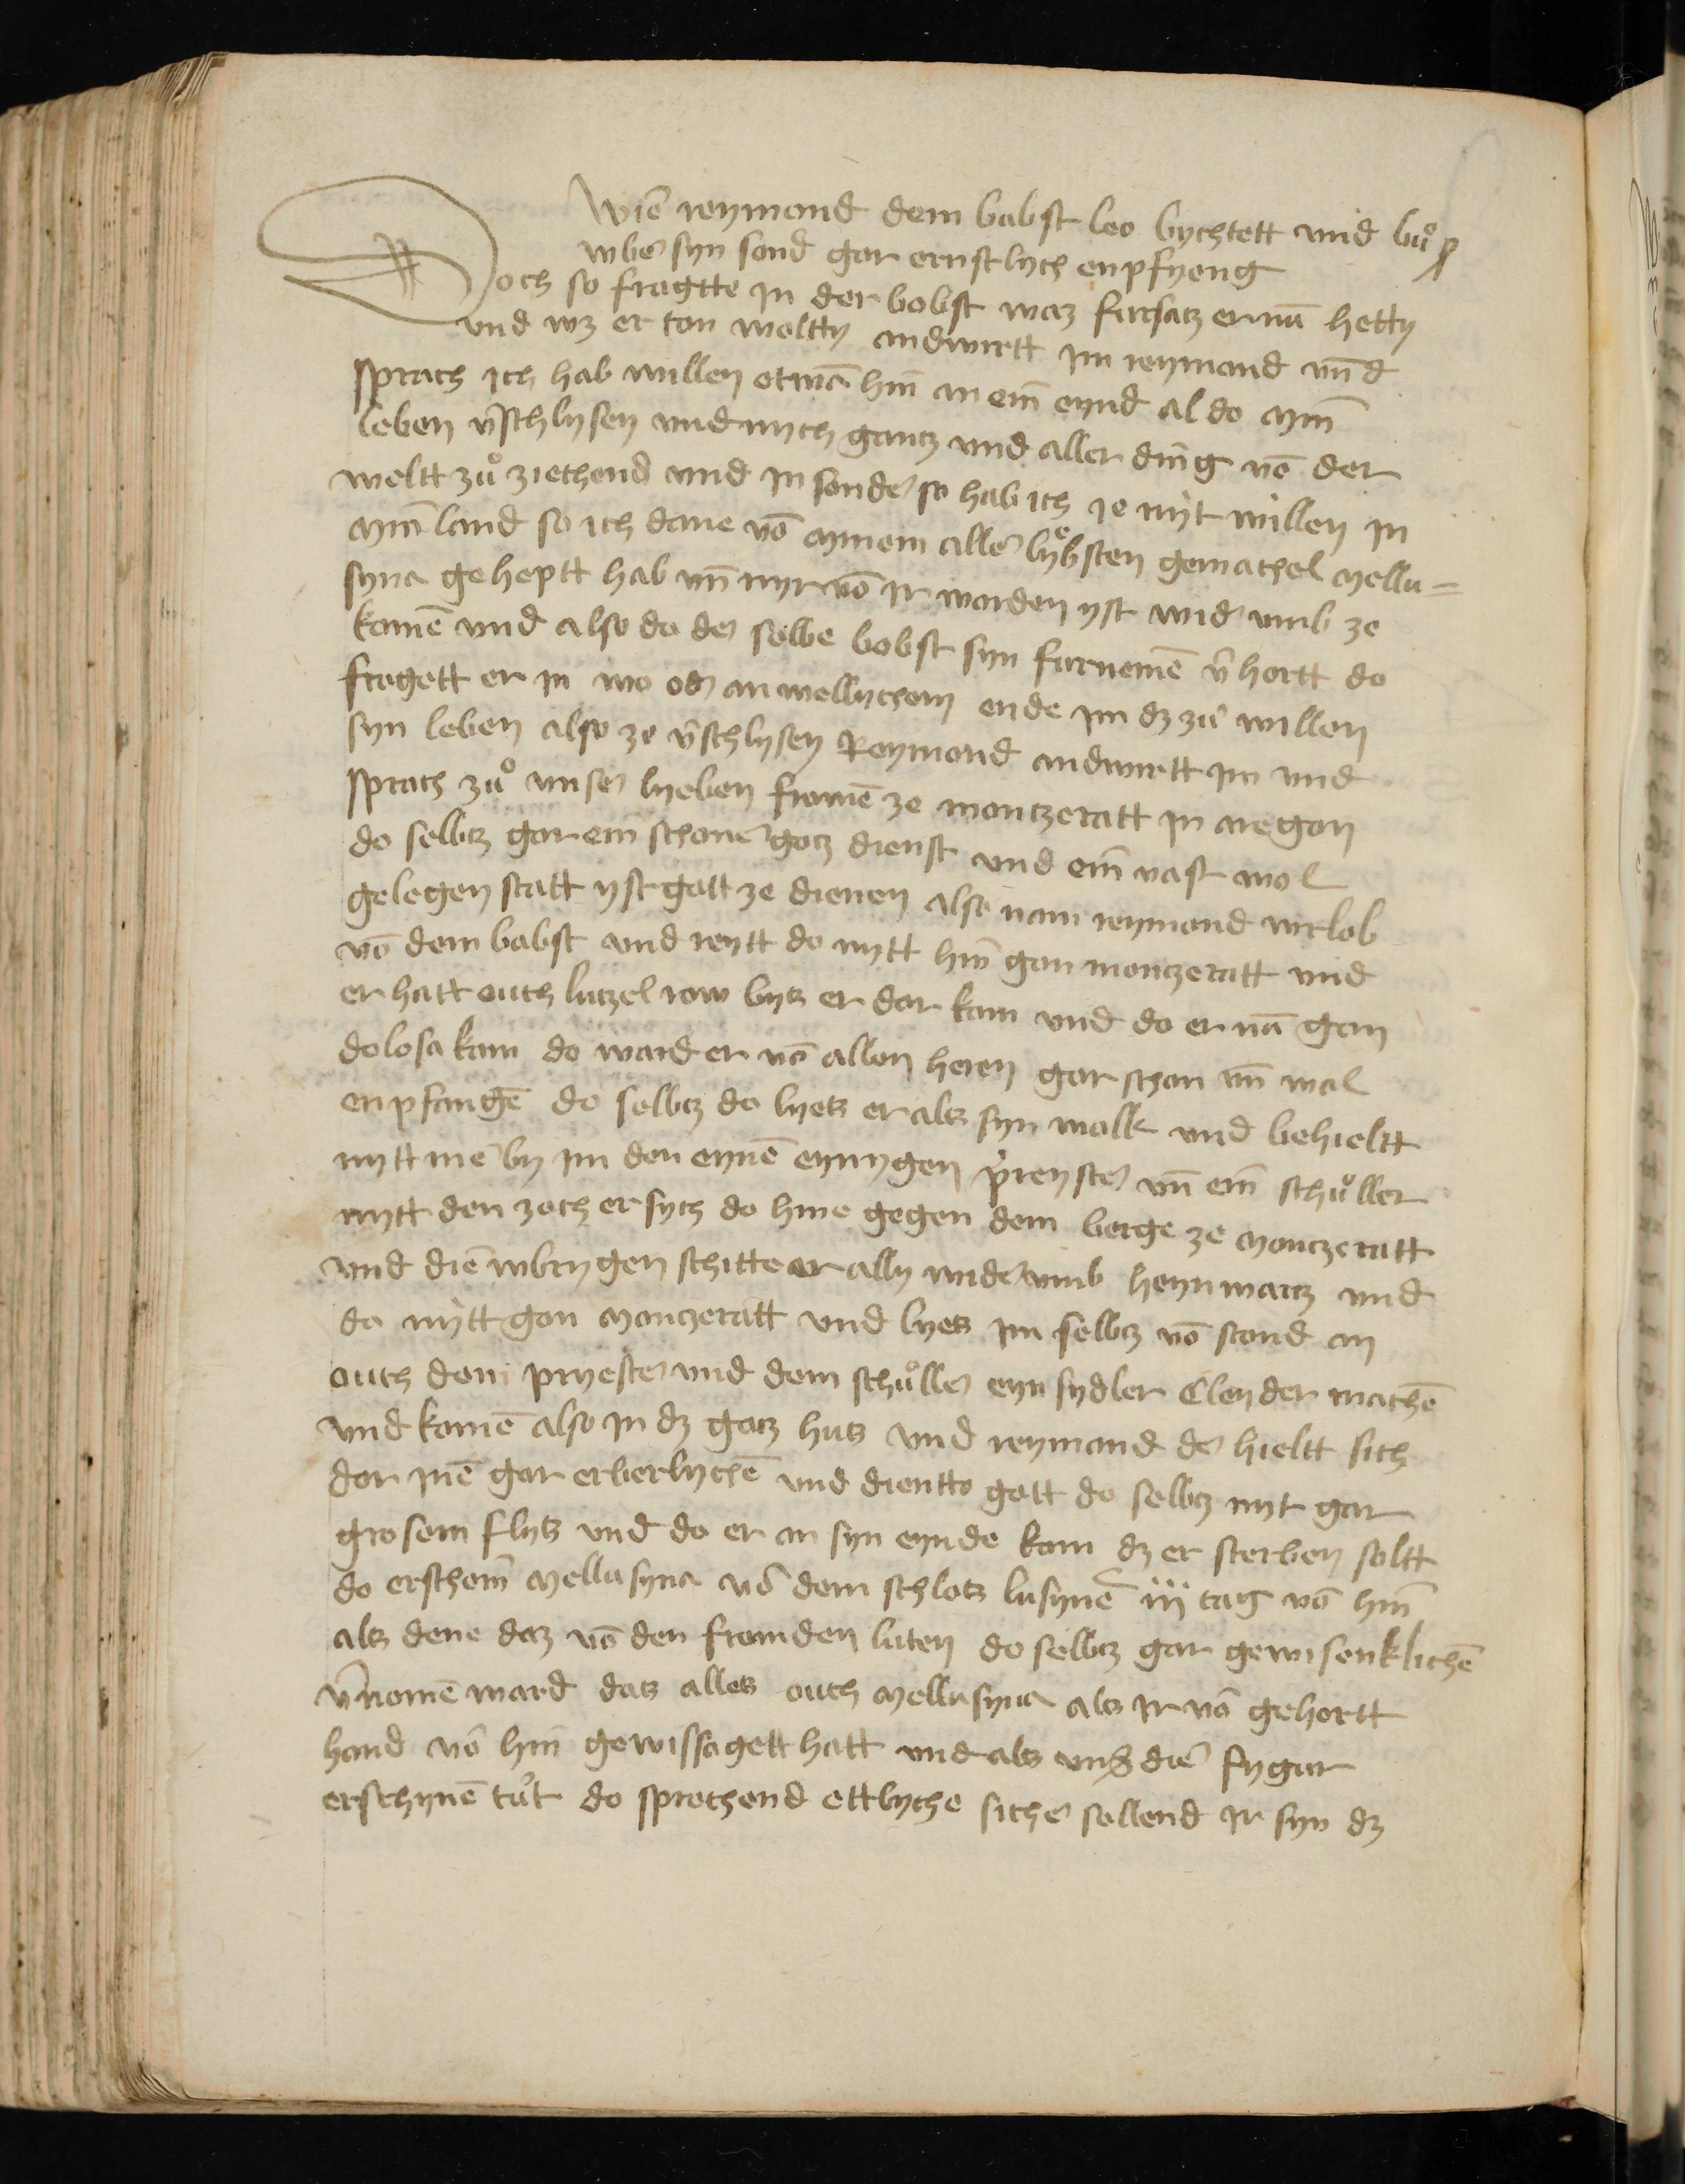 Wie reymond dem babst leo bychtett und buͦß
uber syn sond gar ernstlych enpfyeng
Doch so fragtte in der bobst waz fursatz er nū hetty
und wz er ton woltty andwirtt im reymond un̄d
sprach ich hab willen etwā hin̄ an ein̄ eynd al do myn̄
leben v̄schlysen und mych gantz und aller ding vō der
weltt zuͦ ziechend und in sonder so hab ich ie nyt willen in
myn̄ land so ich dane vō mynem aller lyͤbsten gemachel mellu=
syna geheptt hab un̄ myr vō ir worden yst wider umb ze
komē und also do der selbe bobst syn furnemē v̄hortt do
fragett er in wo oder an wellychem ende im dz zuͦ willen
syn leben also ze v̄schlysen Reymond andwurtt im und
sprach zuͦ unser lyeben frowē ze montzeratt in aragon
do selbtz gar ein schoner gotz dienst und ein̄ vast wol
gelegen statt yst gott ze dienen also nam reymond urlob
vō dem babst und reytt do mytt hin̄ gan montzeratt und
er hatt ouch lutzel row bytz er dar kam und do er nū gan
dolosa kam do ward er vō allen heren gar schon un̄ wol
enpfangē do selbtz do lyetz er als syn wolk und behieltt
nytt me by im den eynē eynygen preyster un̄ ein̄ schuͦller
mytt den zoch er sych do hine gegen dem berge ze montzeratt
und die ubrygen schitte er ally wider umb heynwartz und
do mytt gon montzeratt und lyetz im selbtz vō stond an
ouch dem pryester und dem schuͦller eynsydler cleyder machē
und komē also in dz gotz hus und reymond der hieltt sich
dor inē gar erberlychē und dientte gott do selbtz myt gar
grosem flytz und do er an syn eynde kam dz er sterben soltt
do erschein̄ mellusyna vō dem schlotz lusynē iij tag vō hin̄
als dene daz vō den fromden luten do selbtz gar gewisenklichē
v̄nomē ward datz alles ouch mellusyna als ir vō gehortt
hand vō hin̄ gewissagett hatt und als unß die fygur
erschynē tuͦt do sprechend ettlyche sicher sollend ir syn dz